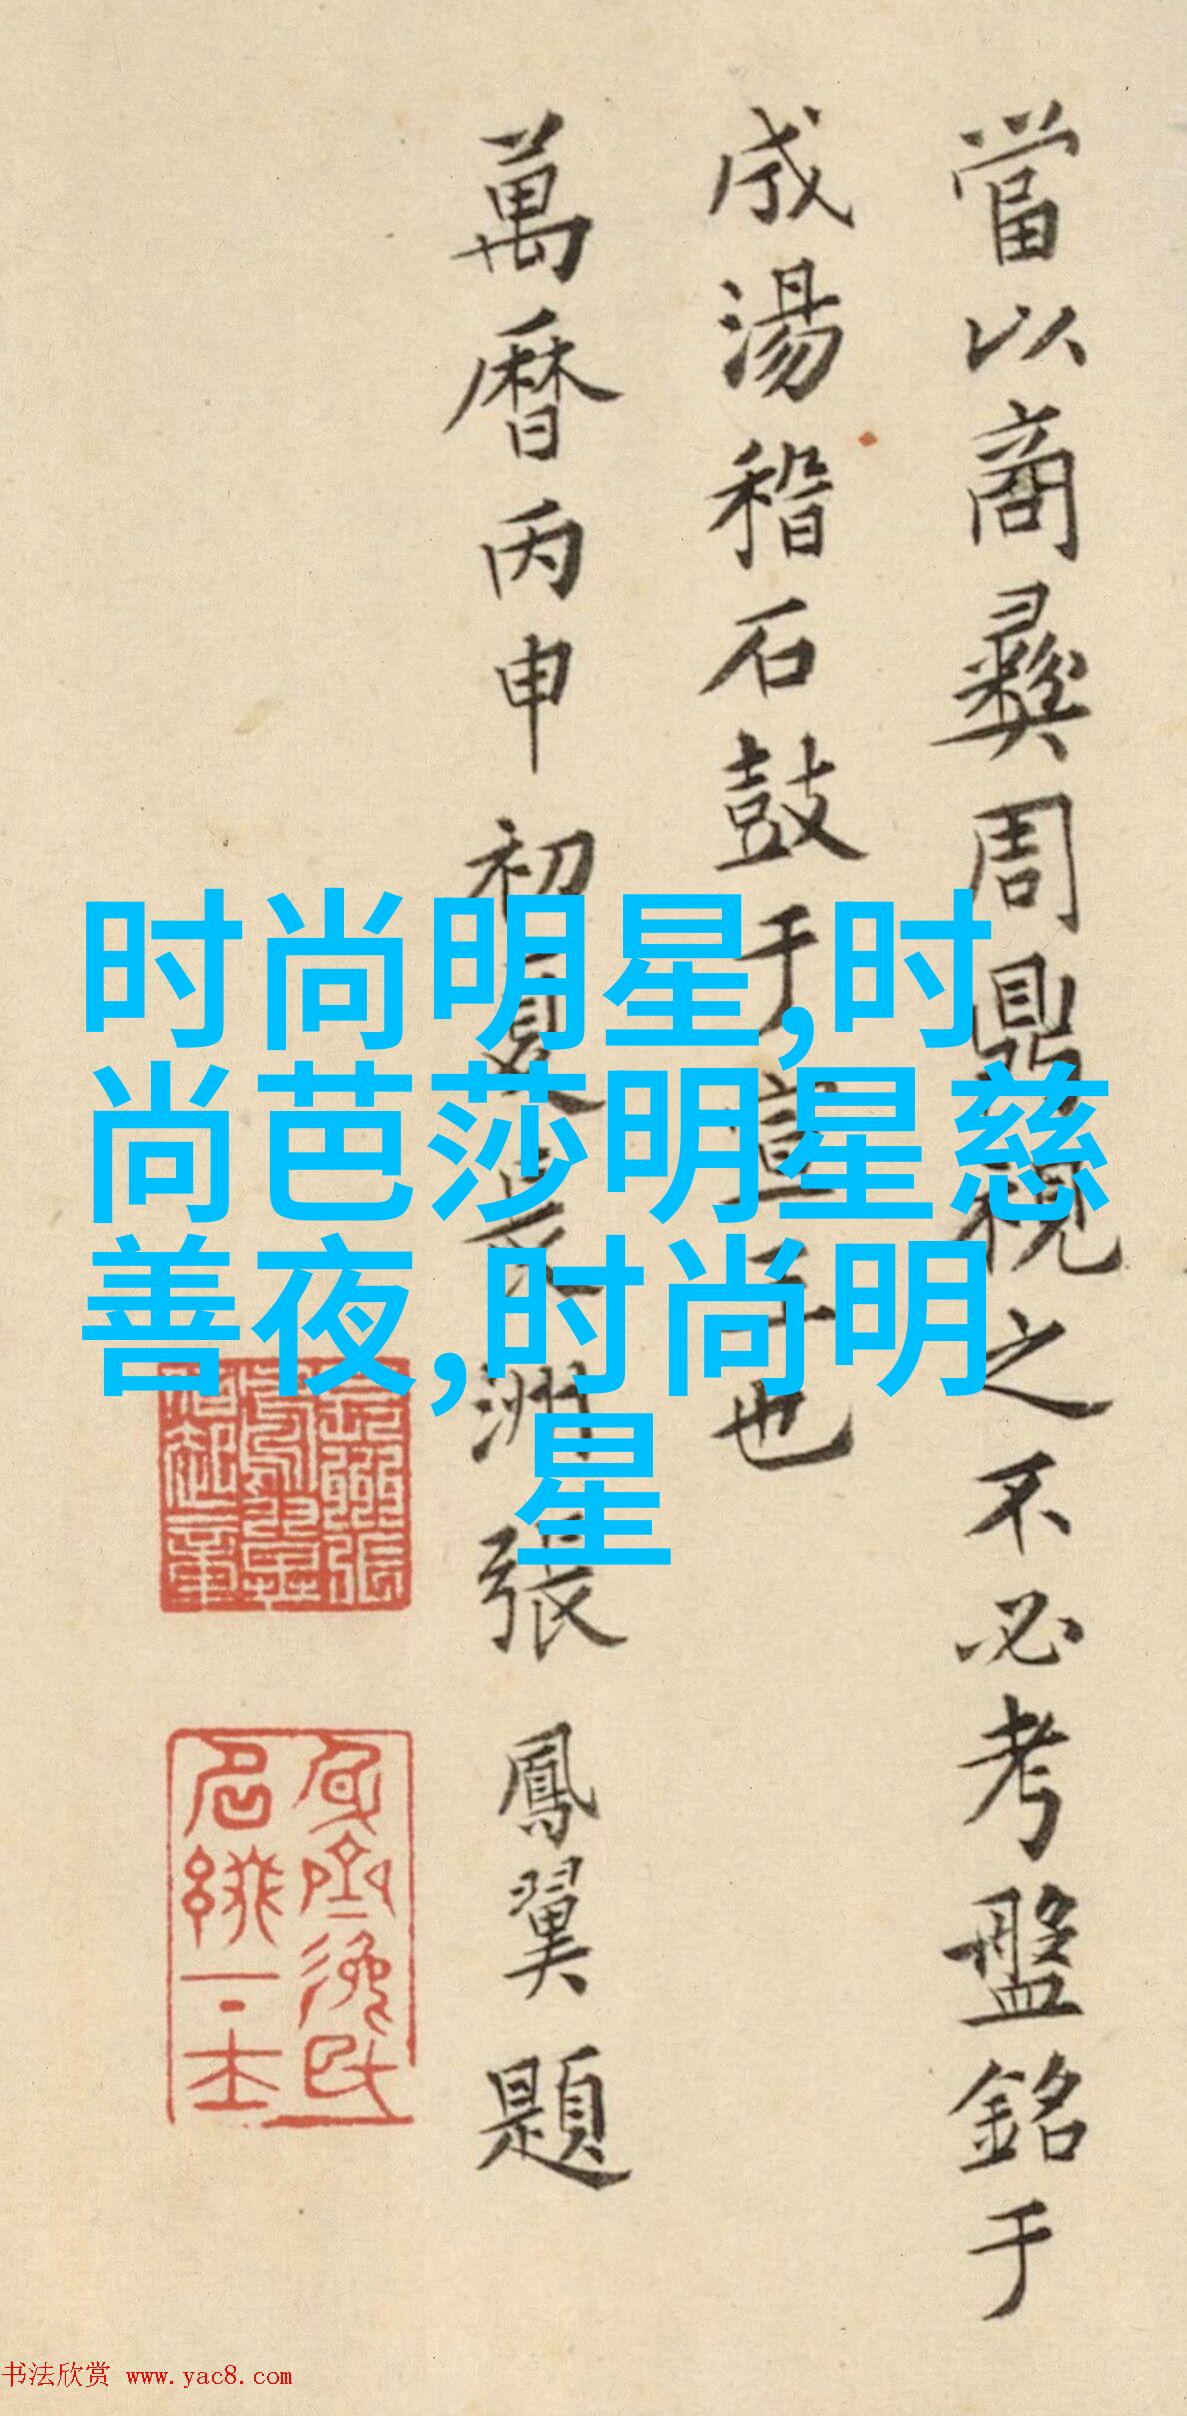 當以商彝周鼎視之不必考盤銘于
成湯稽石鼓于宣王也
萬曆丙申初夏長洲張鳳翼題
时尚明星,时
尚芭莎明星慈
善夜,时尚明
星
书法欣赏 www.yac8.com